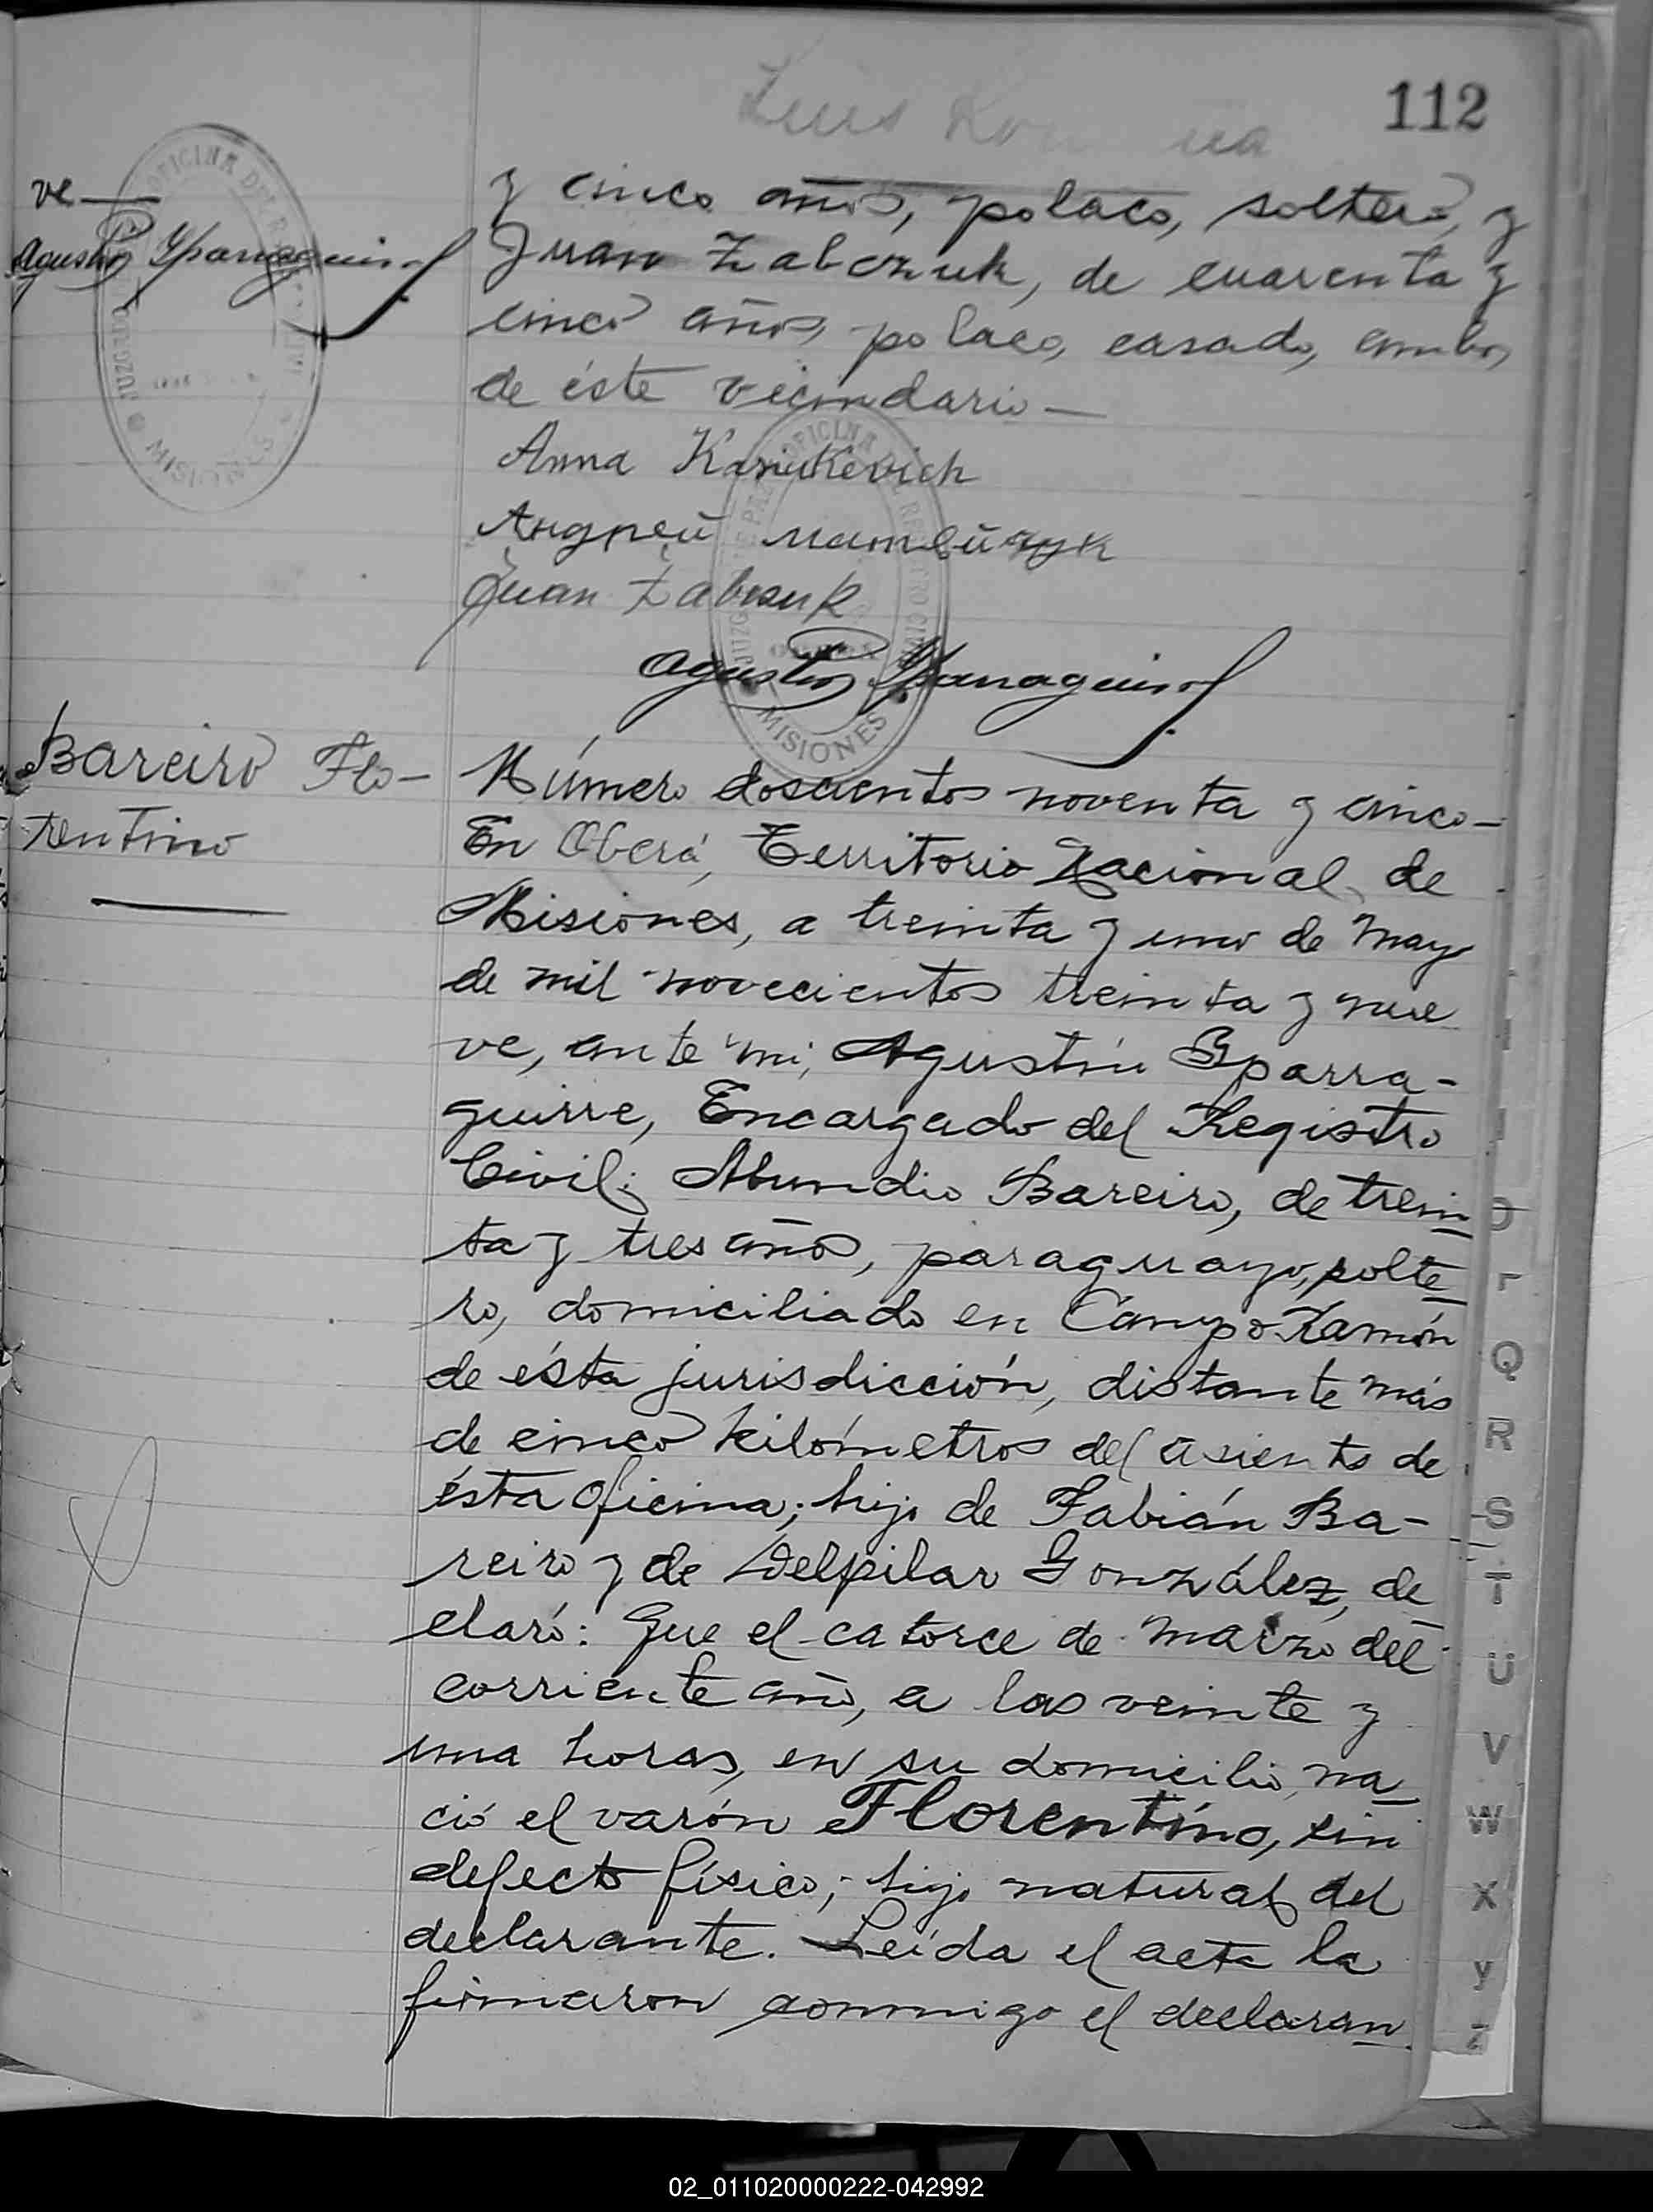 112
Luis
ve
Agustín Yparraguirre
y cinco años, polaco, soltero, y
Juan Zabczuk, de cuarenta y
cinco años, polaco, casado, ambos
de éste vecindario —
Anna Kaniukevich
Juan Zabczuk
Agustín Yparraguirre
OFICINA DEL REGISTRO CIVIL
JUZGADO DE PAZ
MISIONES
Bareiro Flo-
rentino
Número doscientos noventa y cinco —
En Oberá, Territorio Nacional de
Misiones, a treinta y uno de Mayo
de mil novecientos treinta y nue
ve, ante mi, Agustín Yparra-
guirre, Encargado del Registro
Civil; Abundio Bareiro, de trein
ta y tres años, paraguayo, solte
ro, domiciliado en Campo Ramón
de ésta jurisdicción, distante más
de cinco kilómetros del asiento de
ésta oficina; hijo de Fabián Ba-
reiro y de Delpilar González, de
claró: Que el catorce de marzo del
corriente año, a las veinte y
una horas, en su domicilio, na
ció el varón Florentino, sin
defecto físico; hijo natural del
declarante. Leída el acta la
firmaron conmigo el declaran
O
P
Q
R
S
T
U
V
W
X
y
Z
02_011020000222-042992